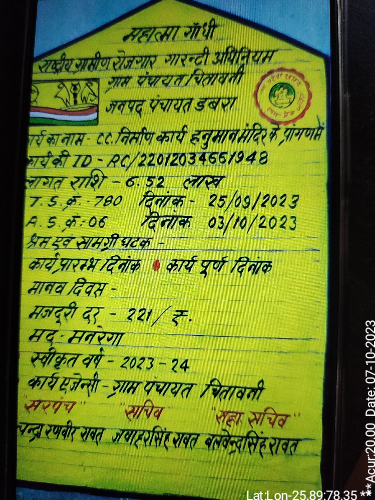 महात्मा गाँधी
राष्ट्रीय ग्रामीण रोजगार गारन्टी अधिनियम
ग्राम पंचायत चितावनी
जनपद पंचायत डबरा
कार्य का नाम - C.C. निर्माण कार्य हनुमान मंदिर के प्रांगण में
कार्य की ID - RC/22012034551948
लागत राशि - 6.52 लाख
T.S. क्र: 780 दिनांक - 25/09/2023
A.S. क्र: 06 दिनांक 03/10/2023
श्रम एवं सामग्री घटक -
कार्य प्रारम्भ दिनांक कार्य पूर्ण दिनांक
मानव दिवस -
मजदूरी दर - 221/ रु.
मद - मनरेगा
स्वीकृत वर्ष - 2023-24
कार्य एजेन्सी - ग्राम पंचायत चितावनी
"सरपंच" "सचिव" "सहा. सचिव"
चन्द्रा रणवीर रावत जवाहरसिंह रावत बलवेन्द्रसिंह रावत
Lat:Lon-25.89:78.35 **Acur:20.00 Date: 07-10-2023